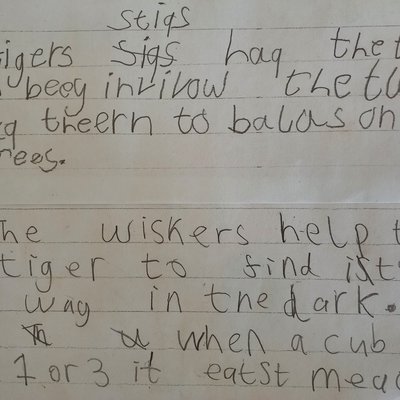 stigs
igers sigs haq thet
beeg in thetu
theern to balas on
rees.
he wiskers help t
tiger to find ist
way in the dark.
when a cub
1 or 3 it eatst mea